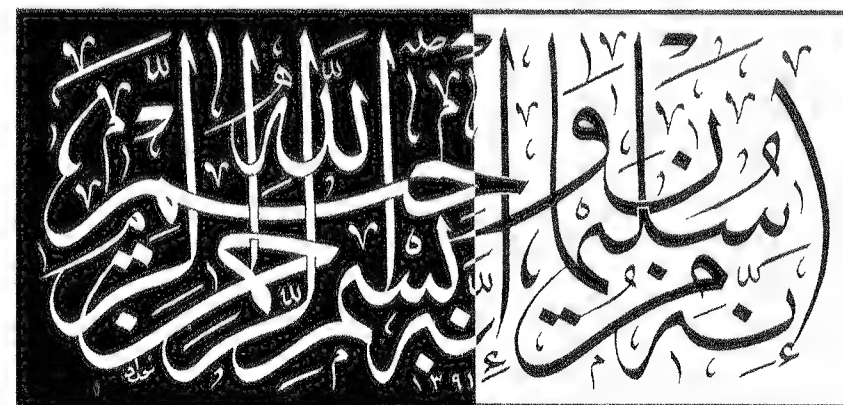 إنه من سليمان وإنه بسم الله الرحمن الرحيم
١٣٩١